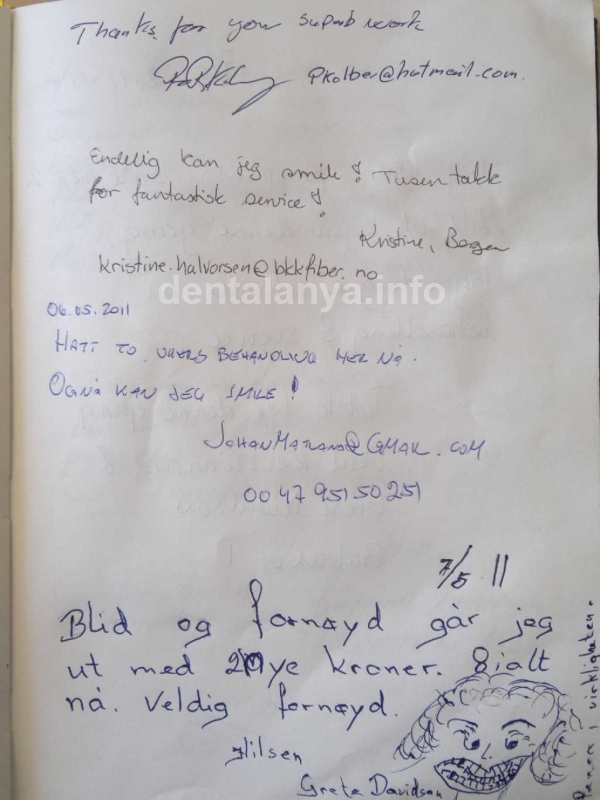 Thanks for your superb work
pkolber@hotmail.com.
Endelig kan jeg smile! Tusen takk
for fantastisk service!
Kristine, Bergen
kristine.halvorsen@bkkfiber.no
dentalanya.info
06.05.2011
HATT TO UKERS BEHANDLING HER NÅ.
OG NÅ KAN JEG SMILE!
00 47 951 50 251
7/5 11
Blid og fornøyd går jeg
ut med 2 nye kroner. 8 ialt
nå. Veldig fornøyd.
Hilsen
Greta Davidsen
Penere i virkligheten.